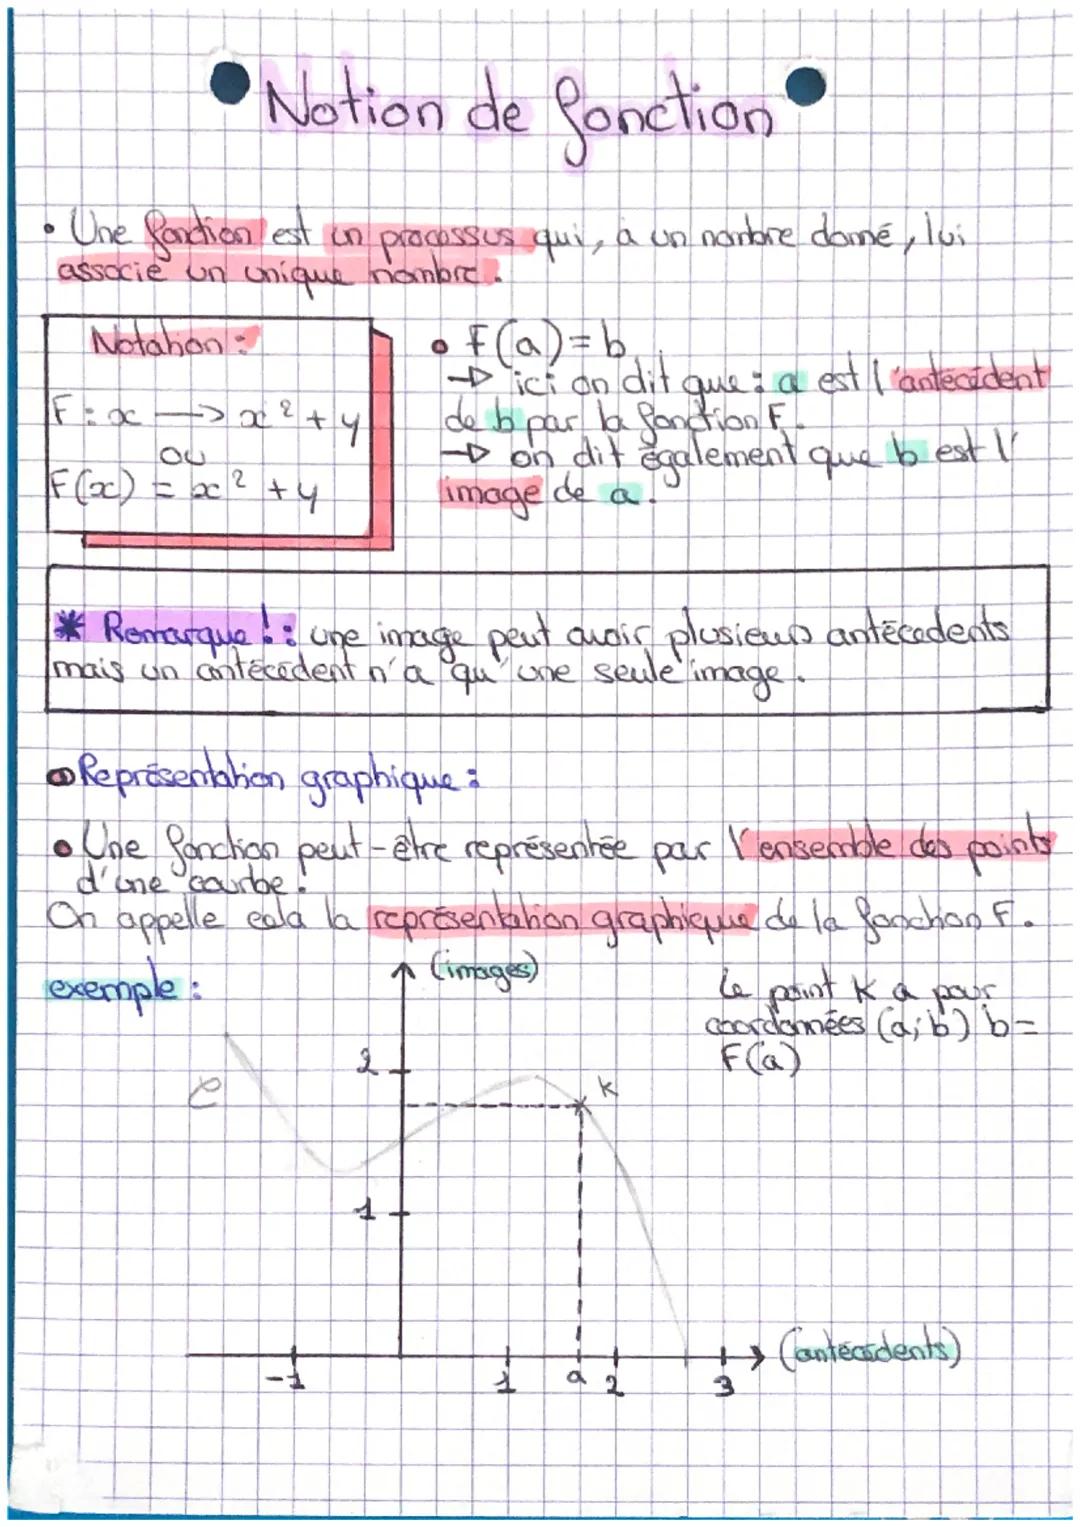 Notion de fonction
• Une fonction est un processus qui, à un nombre donné, lui
associe un unique nombre.
Notation :
F : x → x² + y
ou
F(x) = x² + y
• F(a) = b
→ ici on dit que : a est l'antécédent
de b par la fonction F.
→ on dit également que b est l'
image de a.
* Remarque ! : une image peut avoir plusieurs antécédents
mais un antécédent n'a qu'une seule image.
• Représentation graphique :
• Une fonction peut-être représentée par l'ensemble des points
d'une courbe.
On appelle cela la représentation graphique de la fonction F.
exemple :
(images)
Le point K a pour
coordonnées (a;b) b =
F(a)
2
C
K
1
(antécédents)
-1 1 a 2 3